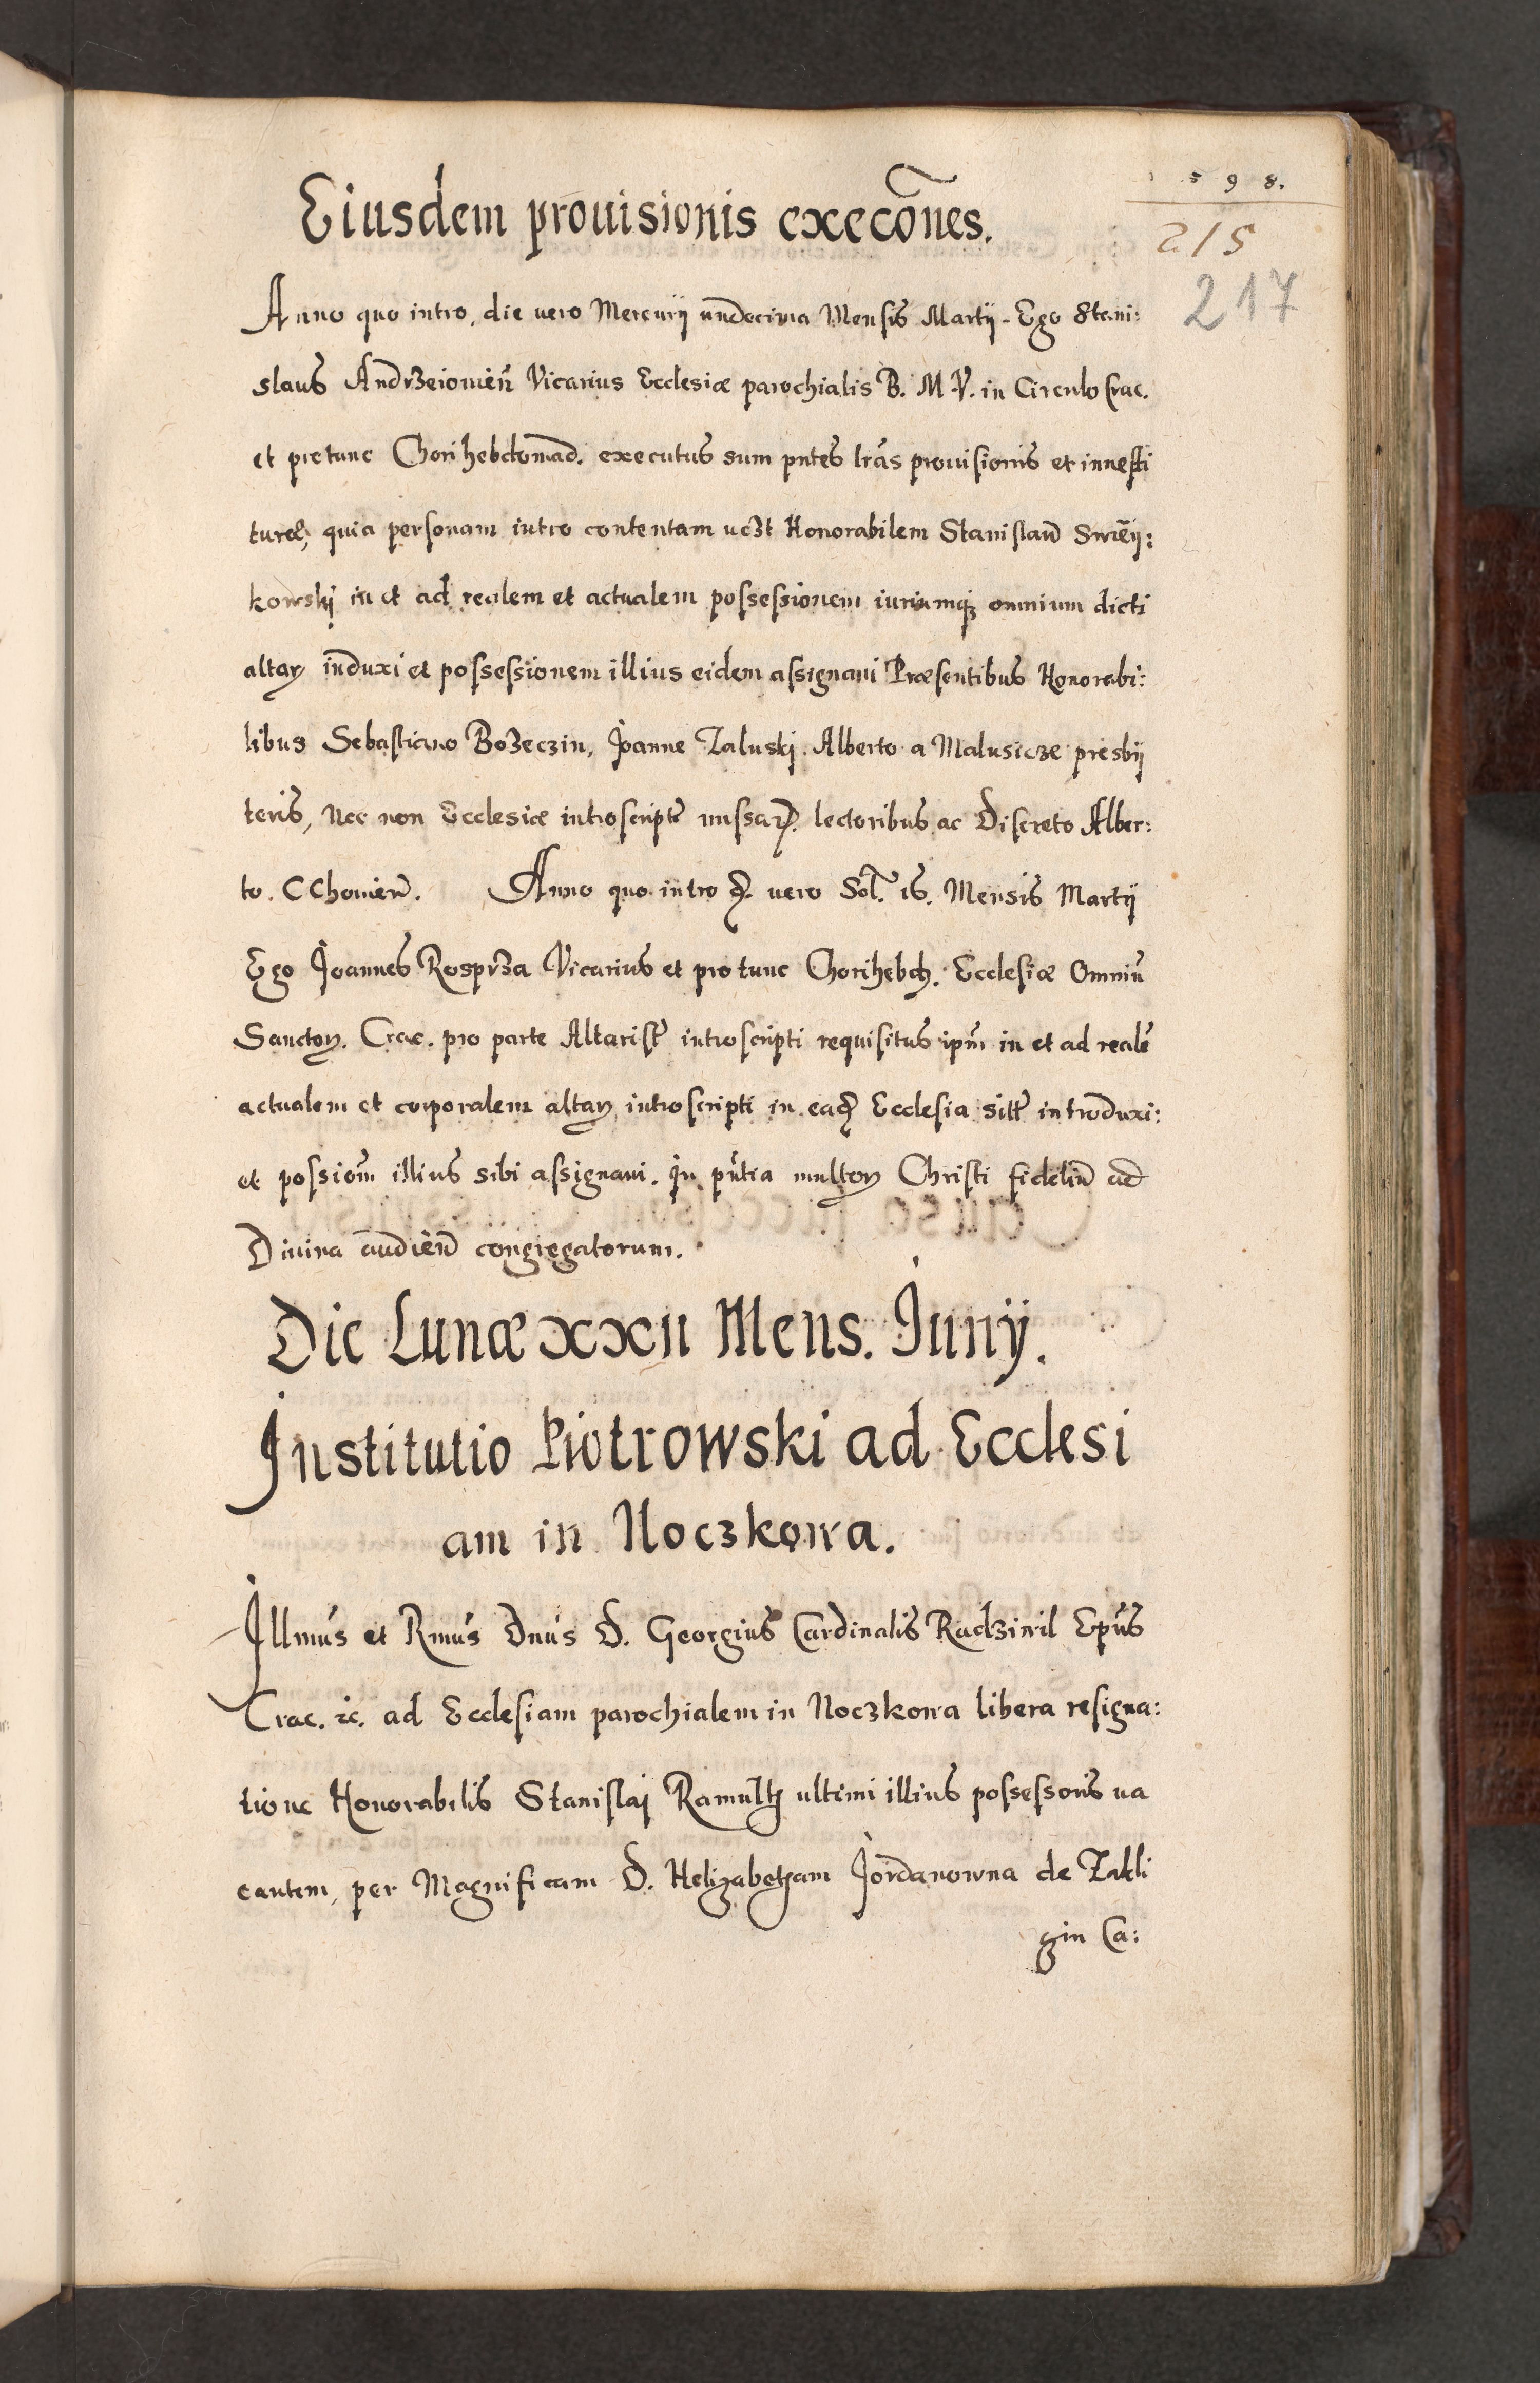 1598.
215
217
Eiusdem prouisionis execones.
Anno quo intro, die vero Mercurij undecima Mensis Martij. Ego Stani:
slaus Andrzeiouien Vicarius Ecclesiæ parochialis B. M. V. in Circulo Crac.
et pro tunc Chori hebdomad. executus sum pntes lras prouisionis et inuesti
turæ, quia personam intro contentam uczt Honorabilem Stanislau
kowskÿ in et ad realem et actualem possessionem iuriumq3 omnium dicti
altar induxi et possessionem illius eidem assignaui Præsentibus Honorabi:
libus Sebastiano Bozeczin, Joanne Zaluski. Alberto a Malusicze presbÿ
teris, Nec non Ecclesiæ introscripte missar. lectoribus ac Discreto Alber:
to. Anno quo intro d. vero Sol. 15. Mensis Martij
Ego Joannes Rosprza Vicarius et pro tunc Chorihebd. Ecclesiæ Omniu
Sanctor. Crac. pro parte Altarist introscripti requisitus ipm in et ad reale
actualem et corporalem altar introscripti in ead Ecclesia sitt introduxi:
et possiom illius sibi assignaui. In pntia multor Christi fideliu ad
Diuina audien congregatorum.
Die Lunæ xxii Mens. Junÿ.
Institutio Piotrowski ad Ecclesi
am in Noczkowa.
Illmus et Rmus Dnus D. Georgius Cardinalis Radziwil Epus
Crac. zc. ad Ecclesiam parochialem in Noczkowa libera resigna:
tione Honorabilis Stanislaj Ramultz ultimi illius possessoris ua
cantem, per Magnificam D. Helizabetham Jordanowna de Zakli
gin Ca: